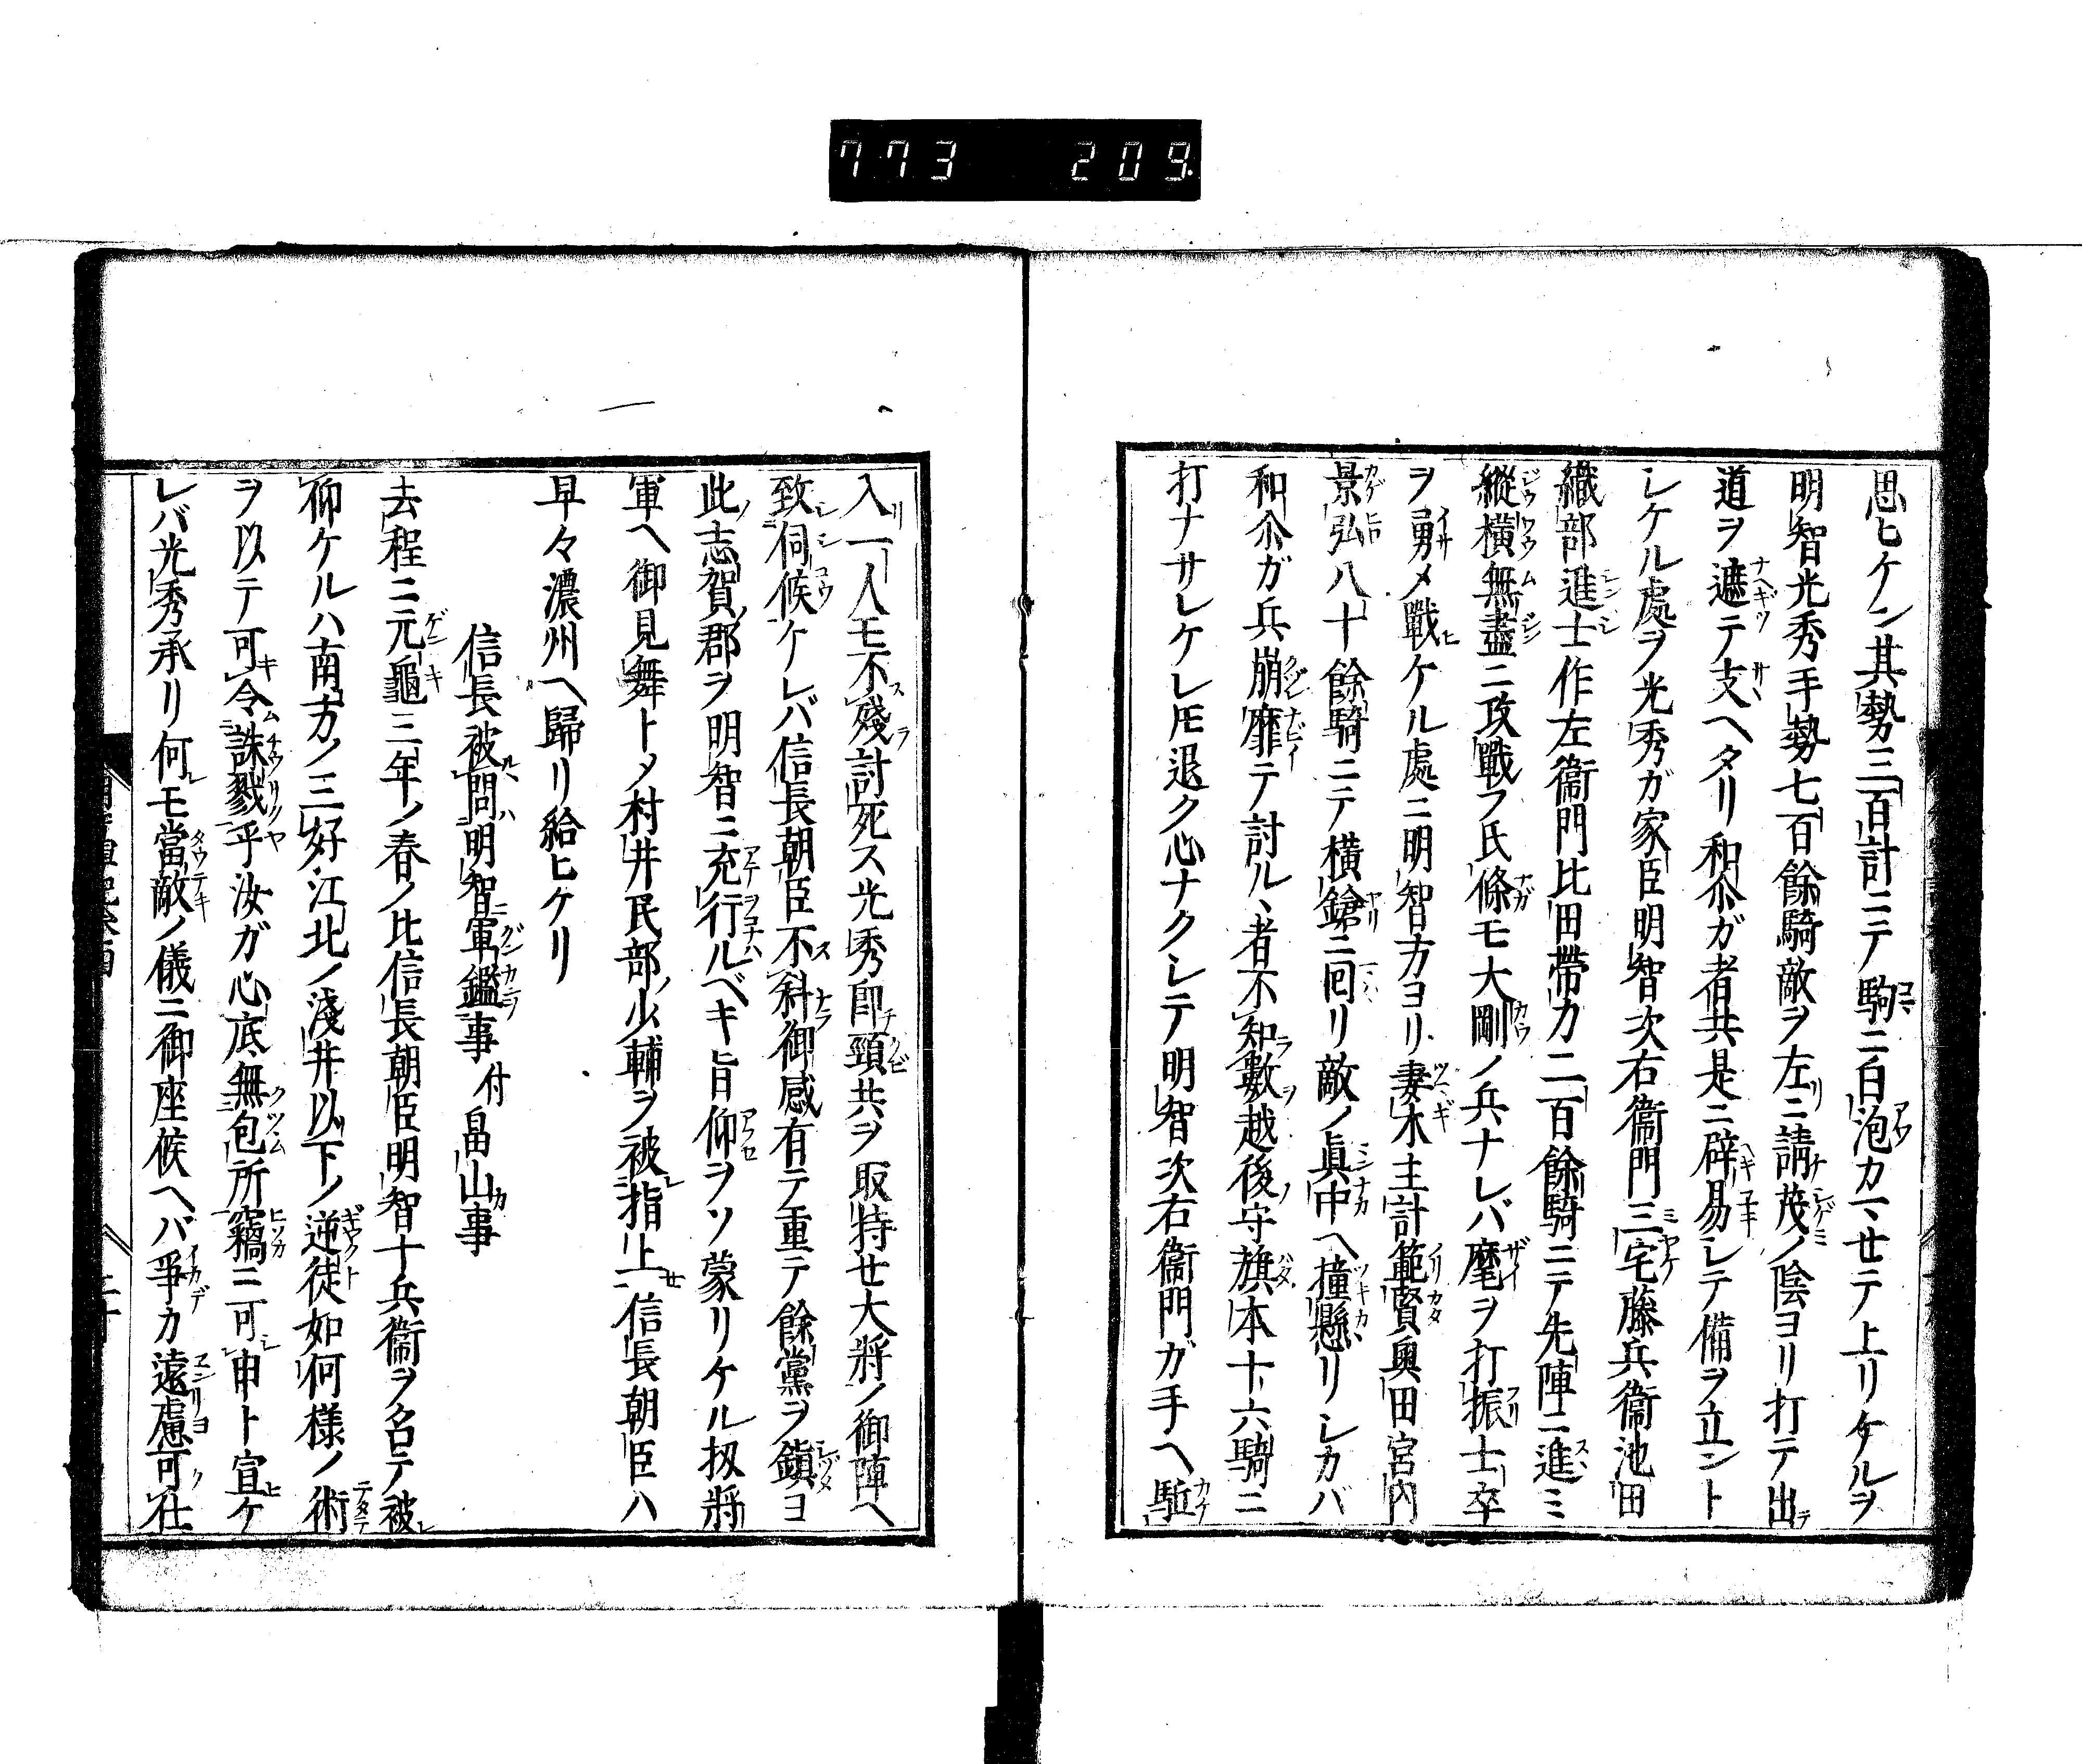 773 209
思ヒケン其勢三百計ニテ駒ニ白泡カマセテ上リケルヲ
明智光秀手勢七百餘騎敵ヲ左ニ請茂ノ陰ヨリ打テ出
道ヲ遮テ支ヘタリ和尒ガ者共是ニ辟易シテ備ヲ立ント
シケル處ヲ光秀ガ家臣明智次右衞門三宅藤兵衞池田
織部進士作左衞門比田帶刀二百餘騎ニテ先陣ニ進ミ
縱橫無盡ニ攻戰フ氏條モ大剛ノ兵ナレバ麾ヲ打振士卒
ヲ勇メ戰ケル處ニ明智方ヨリ妻木主計範賢奧田宮內
景弘八十餘騎ニテ橫鎗ニ回リ敵ノ眞中ヘ撞懸リシカバ
和尒ガ兵崩靡テ討ルヽ者不知數越後守旗本十六騎ニ
打ナサレケレ𪜈退ク心ナクシテ明智次右衞門ガ手ヘ駈
入一人モ不殘討死ス光秀卽頸共ヲ取持セ大將ノ御陣ヘ
致伺候ケレバ信長朝臣不斜御感有テ重テ餘黨ヲ鎭ヨ
此志賀郡ヲ明智ニ充行ルベキ旨仰ヲソ蒙リケル扨將
軍ヘ御見舞トメ村井民部少輔ヲ被指上信長朝臣ハ
早々濃州ヘ歸リ給ヒケリ
信長被問明智軍鑑事付畠山事
去程ニ元龜三年ノ春ノ比信長朝臣明智十兵衞ヲ召テ被
仰ケルハ南方ノ三好江北ノ淺井以下ノ逆徒如何樣ノ術
ヲ以テ可令誅戮乎汝ガ心底無包所竊ニ可申ト宣ケ
レバ光秀承リ何モ當敵ノ儀ニ御座候ヘバ爭カ遠慮可仕